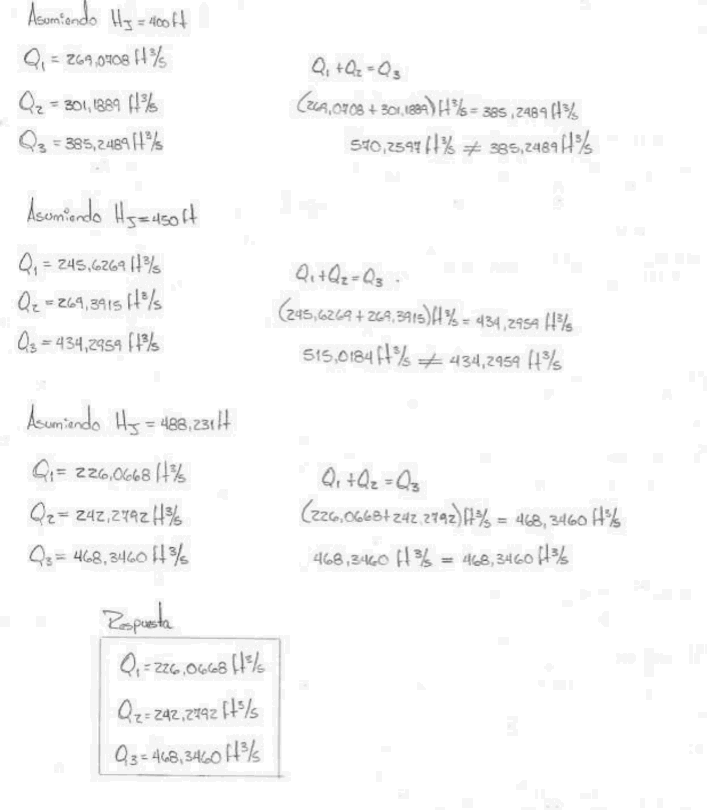 Asumiendo HJ = 400 ft
Q1 = 269,0708 ft³/s
Q2 = 301,1889 ft³/s
Q3 = 385,2489 ft³/s
Q1 + Q2 = Q3
(269,0708 + 301,1889) ft³/s = 385,2489 ft³/s
570,2597 ft³/s ≠ 385,2489 ft³/s
Asumiendo HJ = 450 ft
Q1 = 245,6269 ft³/s
Q2 = 269,3915 ft³/s
Q3 = 434,2959 ft³/s
Q1 + Q2 = Q3 .
(245,6269 + 269,3915) ft³/s = 434,2959 ft³/s
515,0184 ft³/s ≠ 434,2959 ft³/s
Asumiendo HJ = 488,231 ft
Q1 = 226,0668 ft³/s
Q2 = 242,2792 ft³/s
Q3 = 468,3460 ft³/s
Q1 + Q2 = Q3
(226,0668 + 242,2792) ft³/s = 468,3460 ft³/s
468,3460 ft³/s = 468,3460 ft³/s
Respuesta
Q1 = 226,0668 ft³/s
Q2 = 242,2792 ft³/s
Q3 = 468,3460 ft³/s